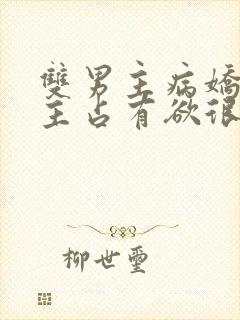 雙男主病嬌
主占有欲很
柳世璽